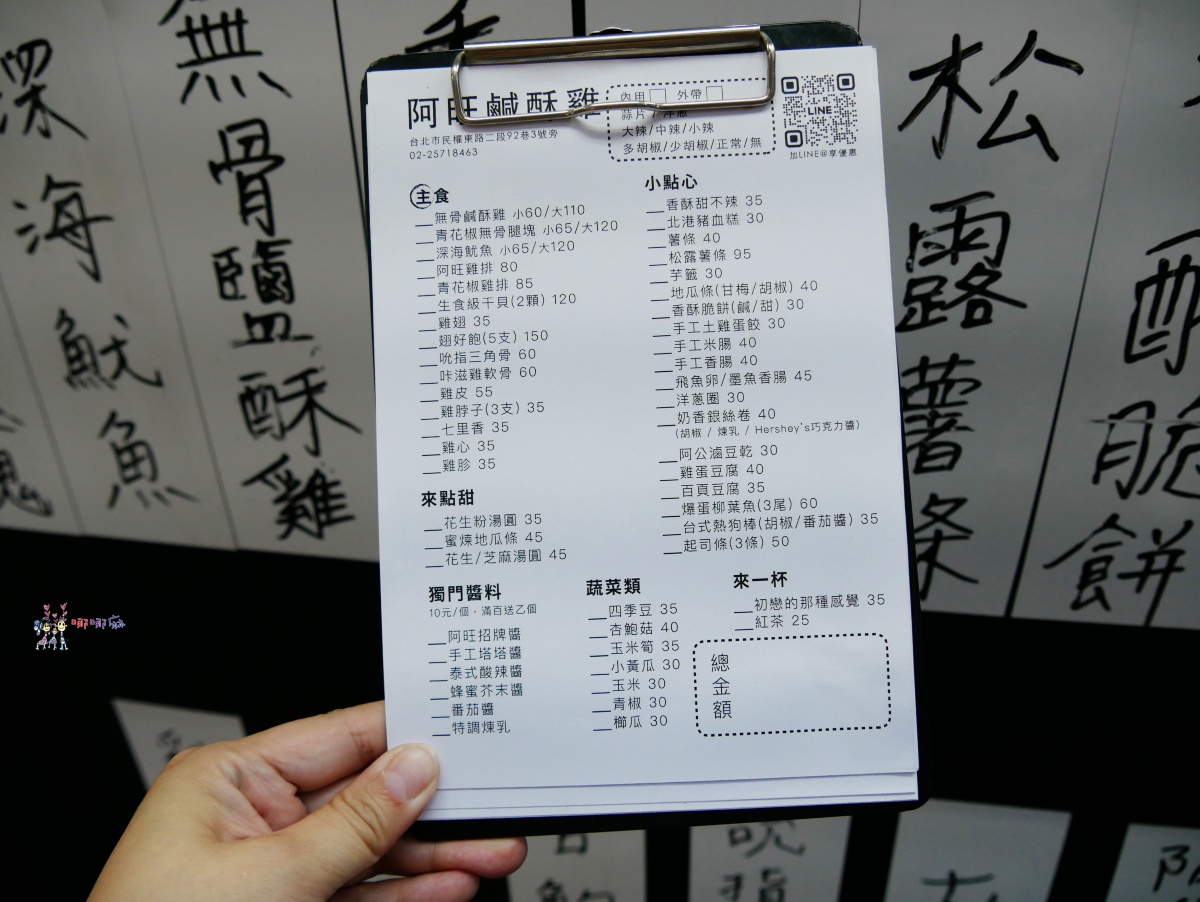 阿旺鹹酥雞
台北市民權東路二段92巷3號旁
02-25718463
內用 外帶
蒜片/洋蔥
大辣/中辣/小辣
多胡椒/少胡椒/正常/無
LINE
加LINE@享優惠
主食
無骨鹹酥雞 小60/大110
青花椒無骨腿塊 小65/大120
深海魷魚 小65/大120
阿旺雞排 80
青花椒雞排 85
生食級干貝(2顆) 120
雞翅 35
翅好飽(5支) 150
吮指三角骨 60
咔滋雞軟骨 60
雞皮 55
雞脖子(3支) 35
七里香 35
雞心 35
雞胗 35
來點甜
花生粉湯圓 35
蜜煉地瓜條 45
花生/芝麻湯圓 45
小點心
香酥甜不辣 35
北港豬血糕 30
薯條 40
松露薯條 95
芋籤 30
地瓜條(甘梅/胡椒) 40
香酥脆餅(鹹/甜) 30
手工土雞蛋餃 30
手工米腸 40
手工香腸 40
飛魚卵/墨魚香腸 45
洋蔥圈 30
奶香銀絲卷 40
(胡椒 / 煉乳 / Hershey's巧克力醬)
阿公滷豆乾 30
雞蛋豆腐 40
百頁豆腐 35
爆蛋柳葉魚(3尾) 60
台式熱狗棒(胡椒/番茄醬) 35
起司條(3條) 50
獨門醬料
10元/個，滿百送乙個
阿旺招牌醬
手工塔塔醬
泰式酸辣醬
蜂蜜芥末醬
番茄醬
特調煉乳
蔬菜類
四季豆 35
杏鮑菇 40
玉米筍 35
小黃瓜 30
玉米 30
青椒 30
櫛瓜 30
來一杯
初戀的那種感覺 35
紅茶 25
總金額
深海魷魚
無骨鹽酥雞
松露薯條
酥脆餅
哪哪麻